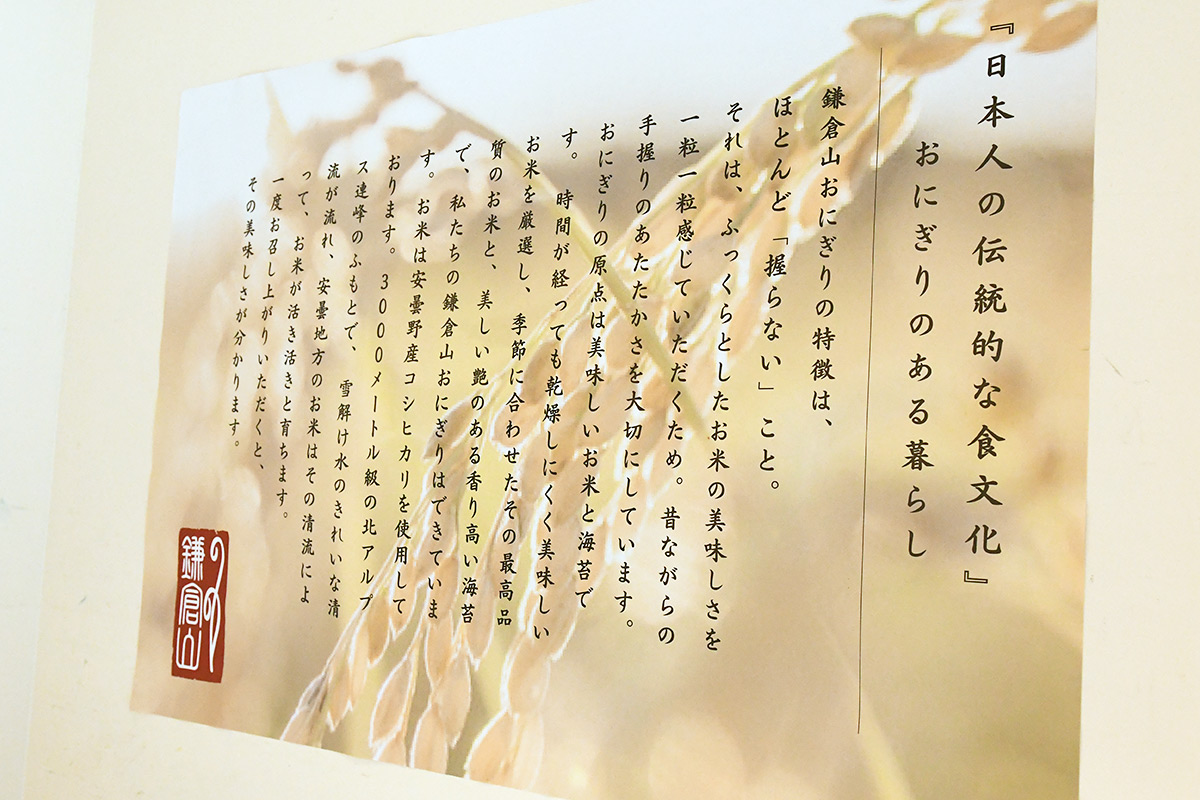 『日本人の伝統的な食文化』
おにぎりのある暮らし
鎌倉山おにぎりの特徴は、
ほとんど「握らない」こと。
それは、ふっくらとしたお米の美味しさを
一粒一粒感じていただくため。昔ながらの
手握りのあたたかさを大切にしています。
おにぎりの原点は美味しいお米と海苔で
す。 時間が経っても乾燥しにくく美味しい
お米を厳選し、季節に合わせたその最高品
質のお米と、美しい艶のある香り高い海苔
で、私たちの鎌倉山おにぎりはできていま
す。お米は安曇野産コシヒカリを使用して
おります。3000メートル級の北アルプ
ス連峰のふもとで、 雪解け水のきれいな清
流が流れ、安曇地方のお米はその清流によ
って、 お米が活き活きと育ちます。
一度お召し上がりいただくと、
その美味しさが分かります。
鎌倉山